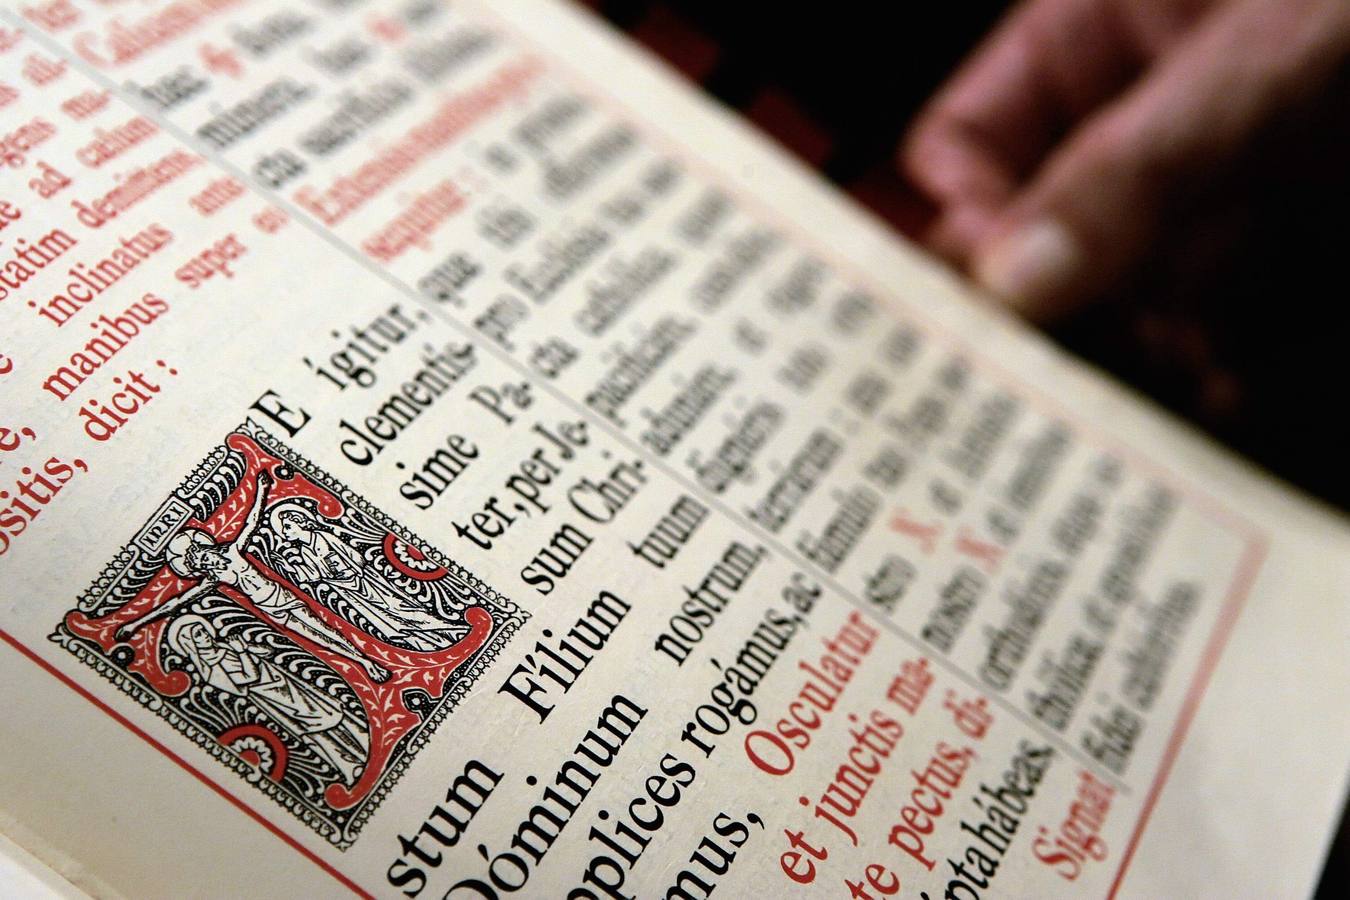 ali-
ad cælum
statim demittens,
inclinatus ante
manibus super
dicit :
INRI
E ígitur,
clementís-
sime Pa-
ter, per Je-
sum Chri-
stum Fílium tuum
Dóminum nostrum,
rogámus, ac
Osculatur
et junctis ma-
pectus, di-
hábeas,
Signat
hæc ✠ dona, hæc
múnera, hæc ✠
cta sacrifícia
Extensis manibus
sequitur :
quæ tibi offérimus
pro Ecclésia tua san-
cta cathólica : quam
pacificáre, custodíre,
adunáre, et régere
dignéris toto orbe
terrárum : una cum
fámulo tuo Papa no-
stro N. et Antístite
nostro N. et ómnibus
orthodóxis, atque ca-
thólicæ, et apostólicæ
fídei cultóribus.